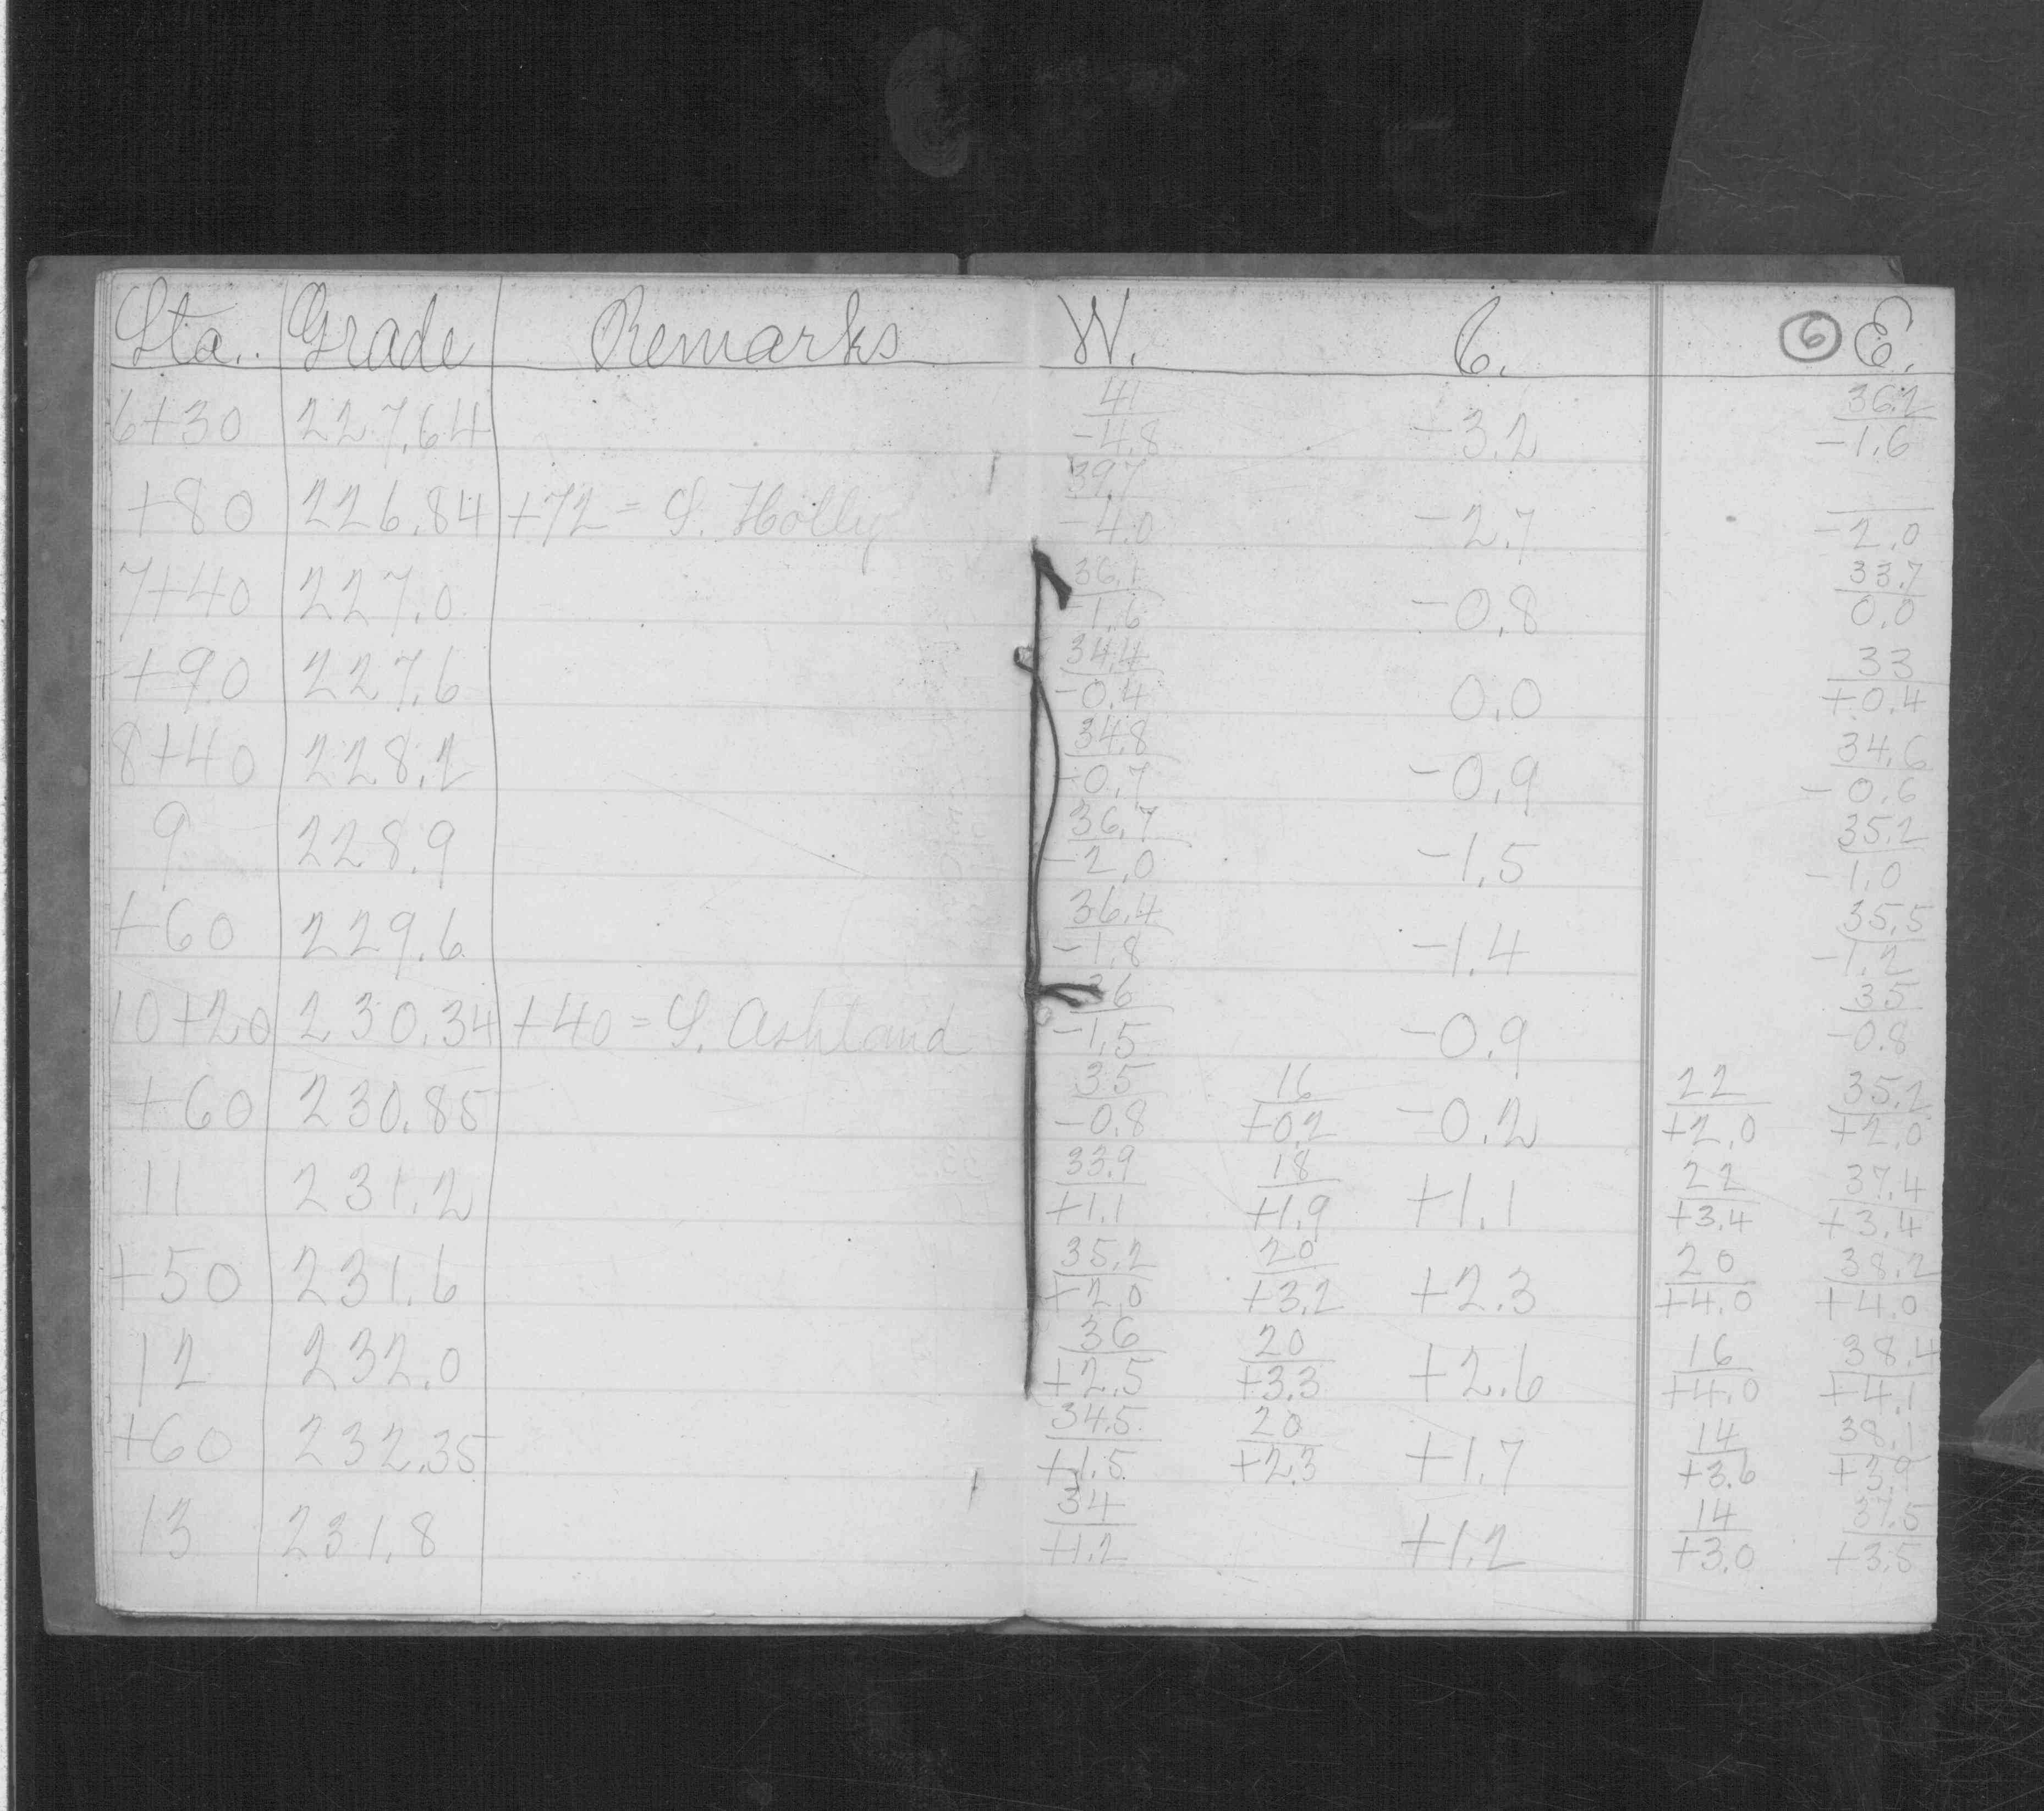 Sta. Grade Remarks W. C. 6 E.
41 36.2
6+30 227.64 -4.8 -3.2 -1.6
39.7
+80 226.84 +72 = S. Holly -4.0 -2.7 -2.0
36.1 33.7
7+40 227.0 -1.6 -0.8 0.0
34.4 33
+90 227.6 -0.4 0.0 +0.4
34.8 34.6
8+40 228.2 -0.7 -0.9 -0.6
36.7 35.2
9 228.9 -2.0 -1.5 -1.0
36.4 35.5
+60 229.6 -1.8 -1.4 -1.2
36 35
10+20 230.34 +40 = S. Ashland -1.5 -0.9 -0.8
35 16 22 35.2
+60 230.85 -0.8 +0.2 -0.2 +2.0 +2.0
33.9 18 22 37.4
11 231.2 +1.1 +1.9 +1.1 +3.4 +3.4
35.2 20 20 38.2
+50 231.6 +2.0 +3.2 +2.3 +4.0 +4.0
36 20 16 38.4
12 232.0 +2.5 +3.3 +2.6 +4.0 +4.1
34.5 20 14 38.1
+60 232.35 +1.5 +2.3 +1.7 +3.6 +3.9
34 14 37.5
13 231.8 +1.2 +1.2 +3.0 +3.5